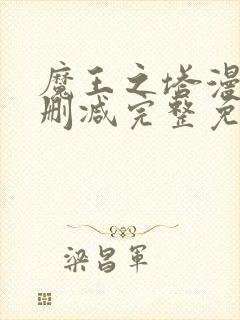 魔王之塔漫
删减完整免
梁昌军